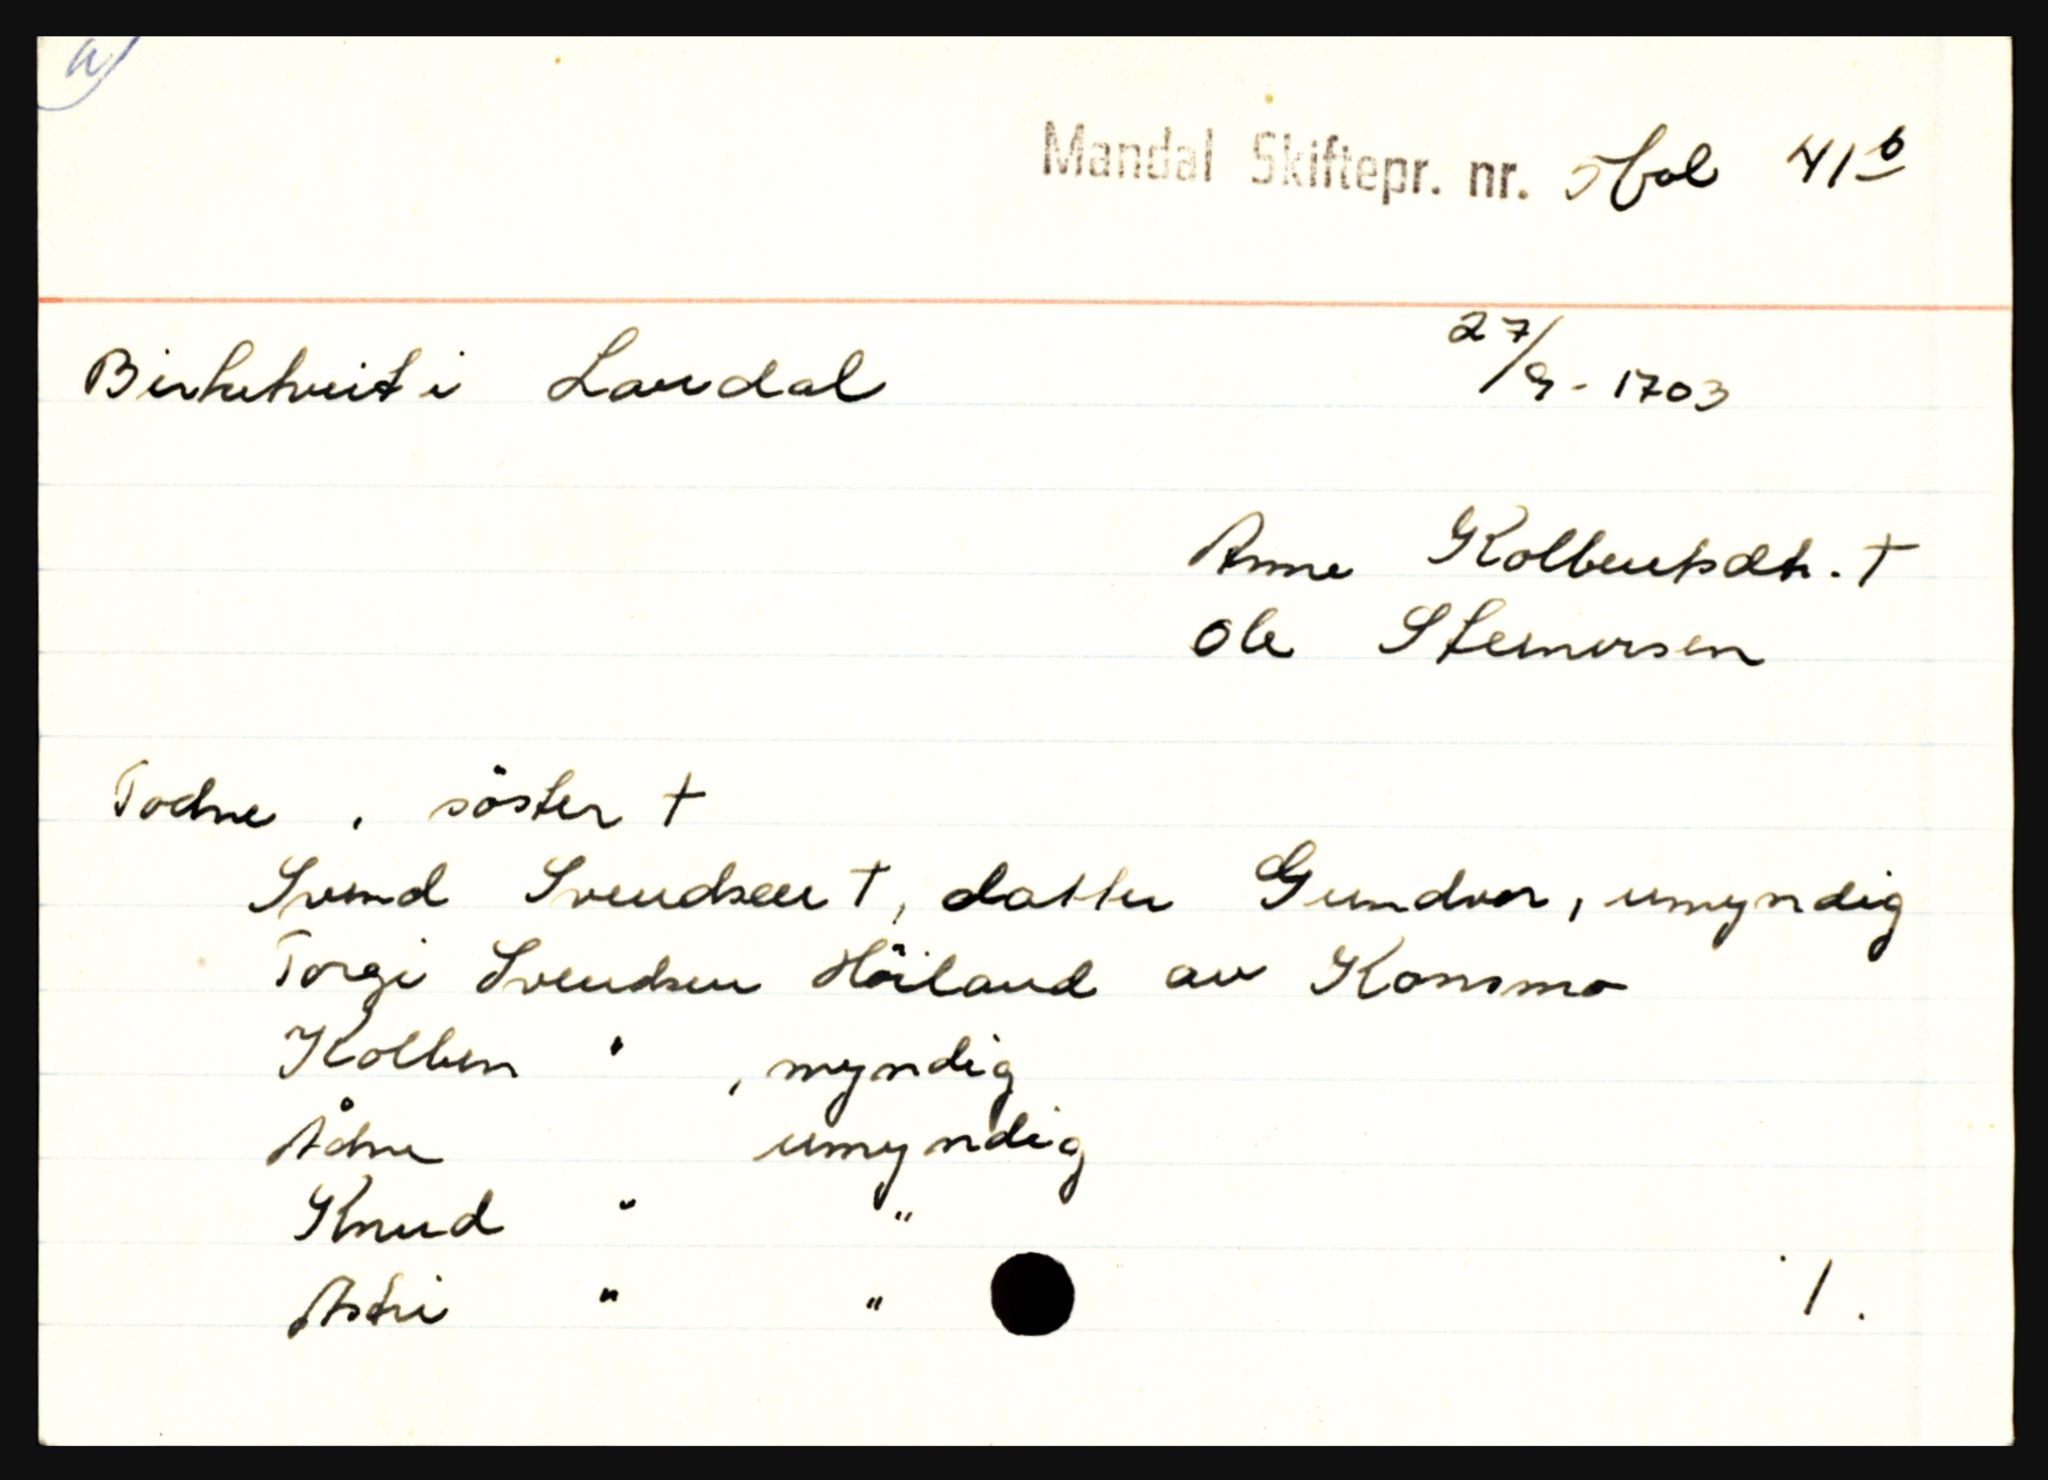 a)
Mandal Skiftepr. nr. 5 fol 41b
Birketveit i Laudal 27/9 - 1703
Anne Kolbensdtr. †
Ole Steinersen
Todne , söster †
Svend Svendsen †, datter Gundvor, umyndig
Torgi Svendsen Höiland av Konsmo
Kolben " , myndig
Ådne umyndig
Knud " "
Astri " "
1.